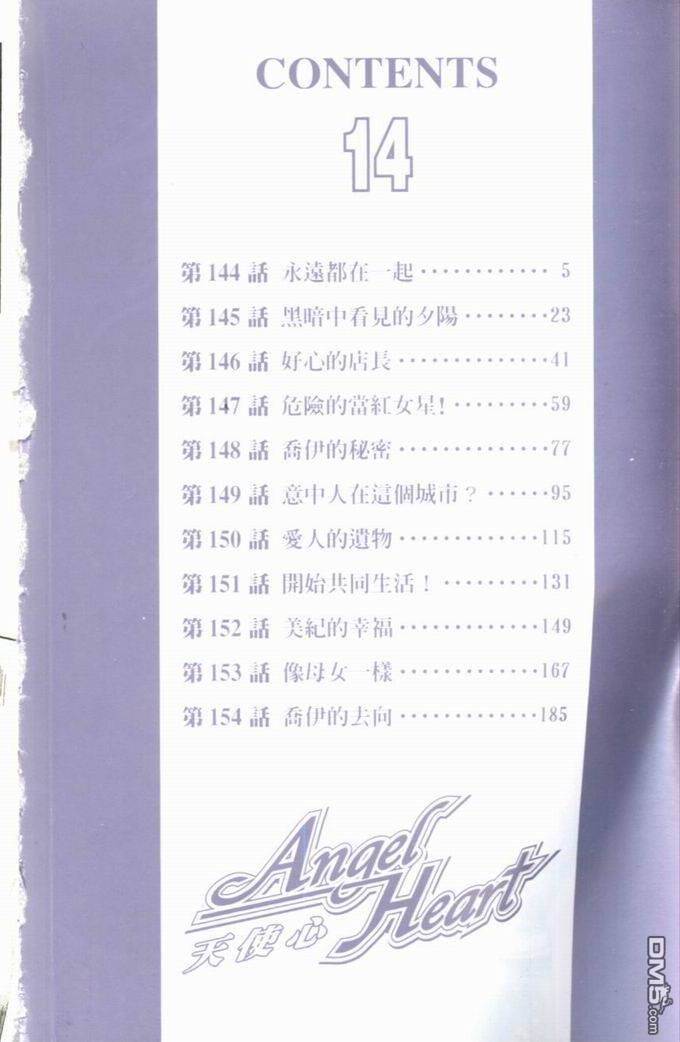 CONTENTS
14
第144話 永遠都在一起············ 5
第145話 黑暗中看見的夕陽········23
第146話 好心的店長··············41
第147話 危險的當紅女星!·········59
第148話 喬伊的秘密··············77
第149話 意中人在這個城市？······95
第150話 愛人的遺物·············115
第151話 開始共同生活！·········131
第152話 美紀的幸福·············149
第153話 像母女一樣·············167
第154話 喬伊的去向·············185
Angel
Heart
天使心
DM5.com